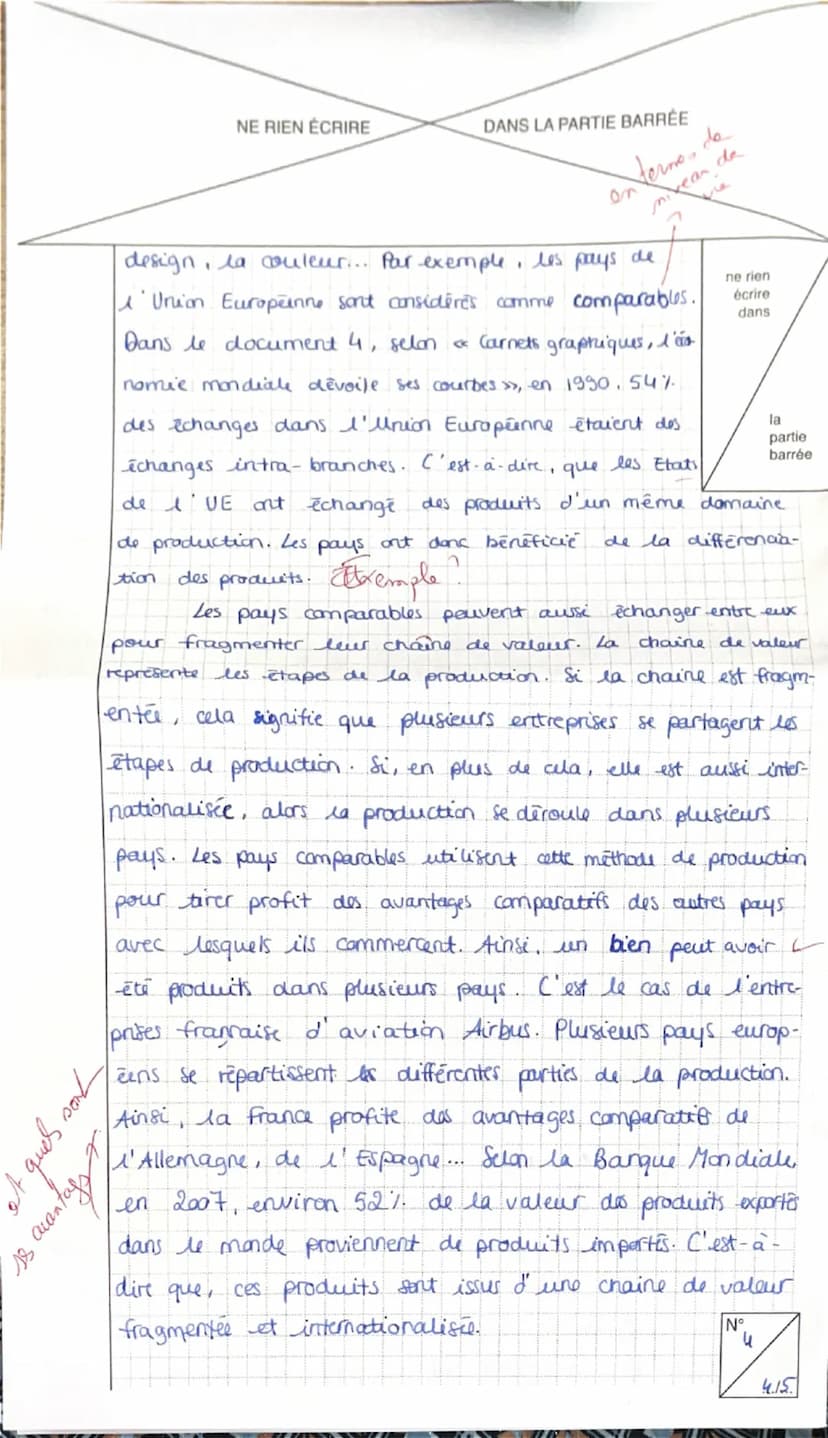 NE RIEN ÉCRIRE
DANS LA PARTIE BARRÉE
en termes de
niveau de
vie
design, la couleur... Par exemple, les pays de
l'Union Européenne sont considérés comme comparables.
ne rien
écrire
dans
Dans le document 4, selon « Carnets graphiques, l'éco-
nomie mondiale dévoile ses courbes », en 1990, 54%
des échanges dans l'Union Européenne étaient des
la
partie
barrée
échanges intra-branches. C'est-à-dire, que les Etats
de l'UE ont échangé des produits d'un même domaine
de production. Les pays ont donc bénéficié de la différencia-
tion des produits. Exemple ?
Les pays comparables peuvent aussi échanger entre eux
pour fragmenter leur chaîne de valeur. La chaine de valeur
représente les étapes de la production. Si la chaine est fragm-
entée, cela signifie que plusieurs entreprises se partagent les
étapes de production. Si, en plus de cela, elle est aussi inter-
nationalisée, alors la production se déroule dans plusieurs
pays. Les pays comparables utilisent cette méthode de production
pour tirer profit des avantages comparatifs des autres pays
avec lesquels ils commercent. Ainsi, un bien peut avoir
été produits dans plusieurs pays. C'est le cas de l'entre-
prises française d'aviation Airbus. Plusieurs pays europ-
éens se répartissent les différentes parties de la production.
et quels sont
ses avantages ?
Ainsi, la France profite des avantages comparatifs de
l'Allemagne, de l'Espagne... Selon la Banque Mondiale,
en 2007, environ 52% de la valeur des produits exportés
dans le monde proviennent de produits importés. C'est-à-
dire que, ces produits sont issus d'une chaine de valeur
fragmentée et internationalisée.
N°
4
4.15.